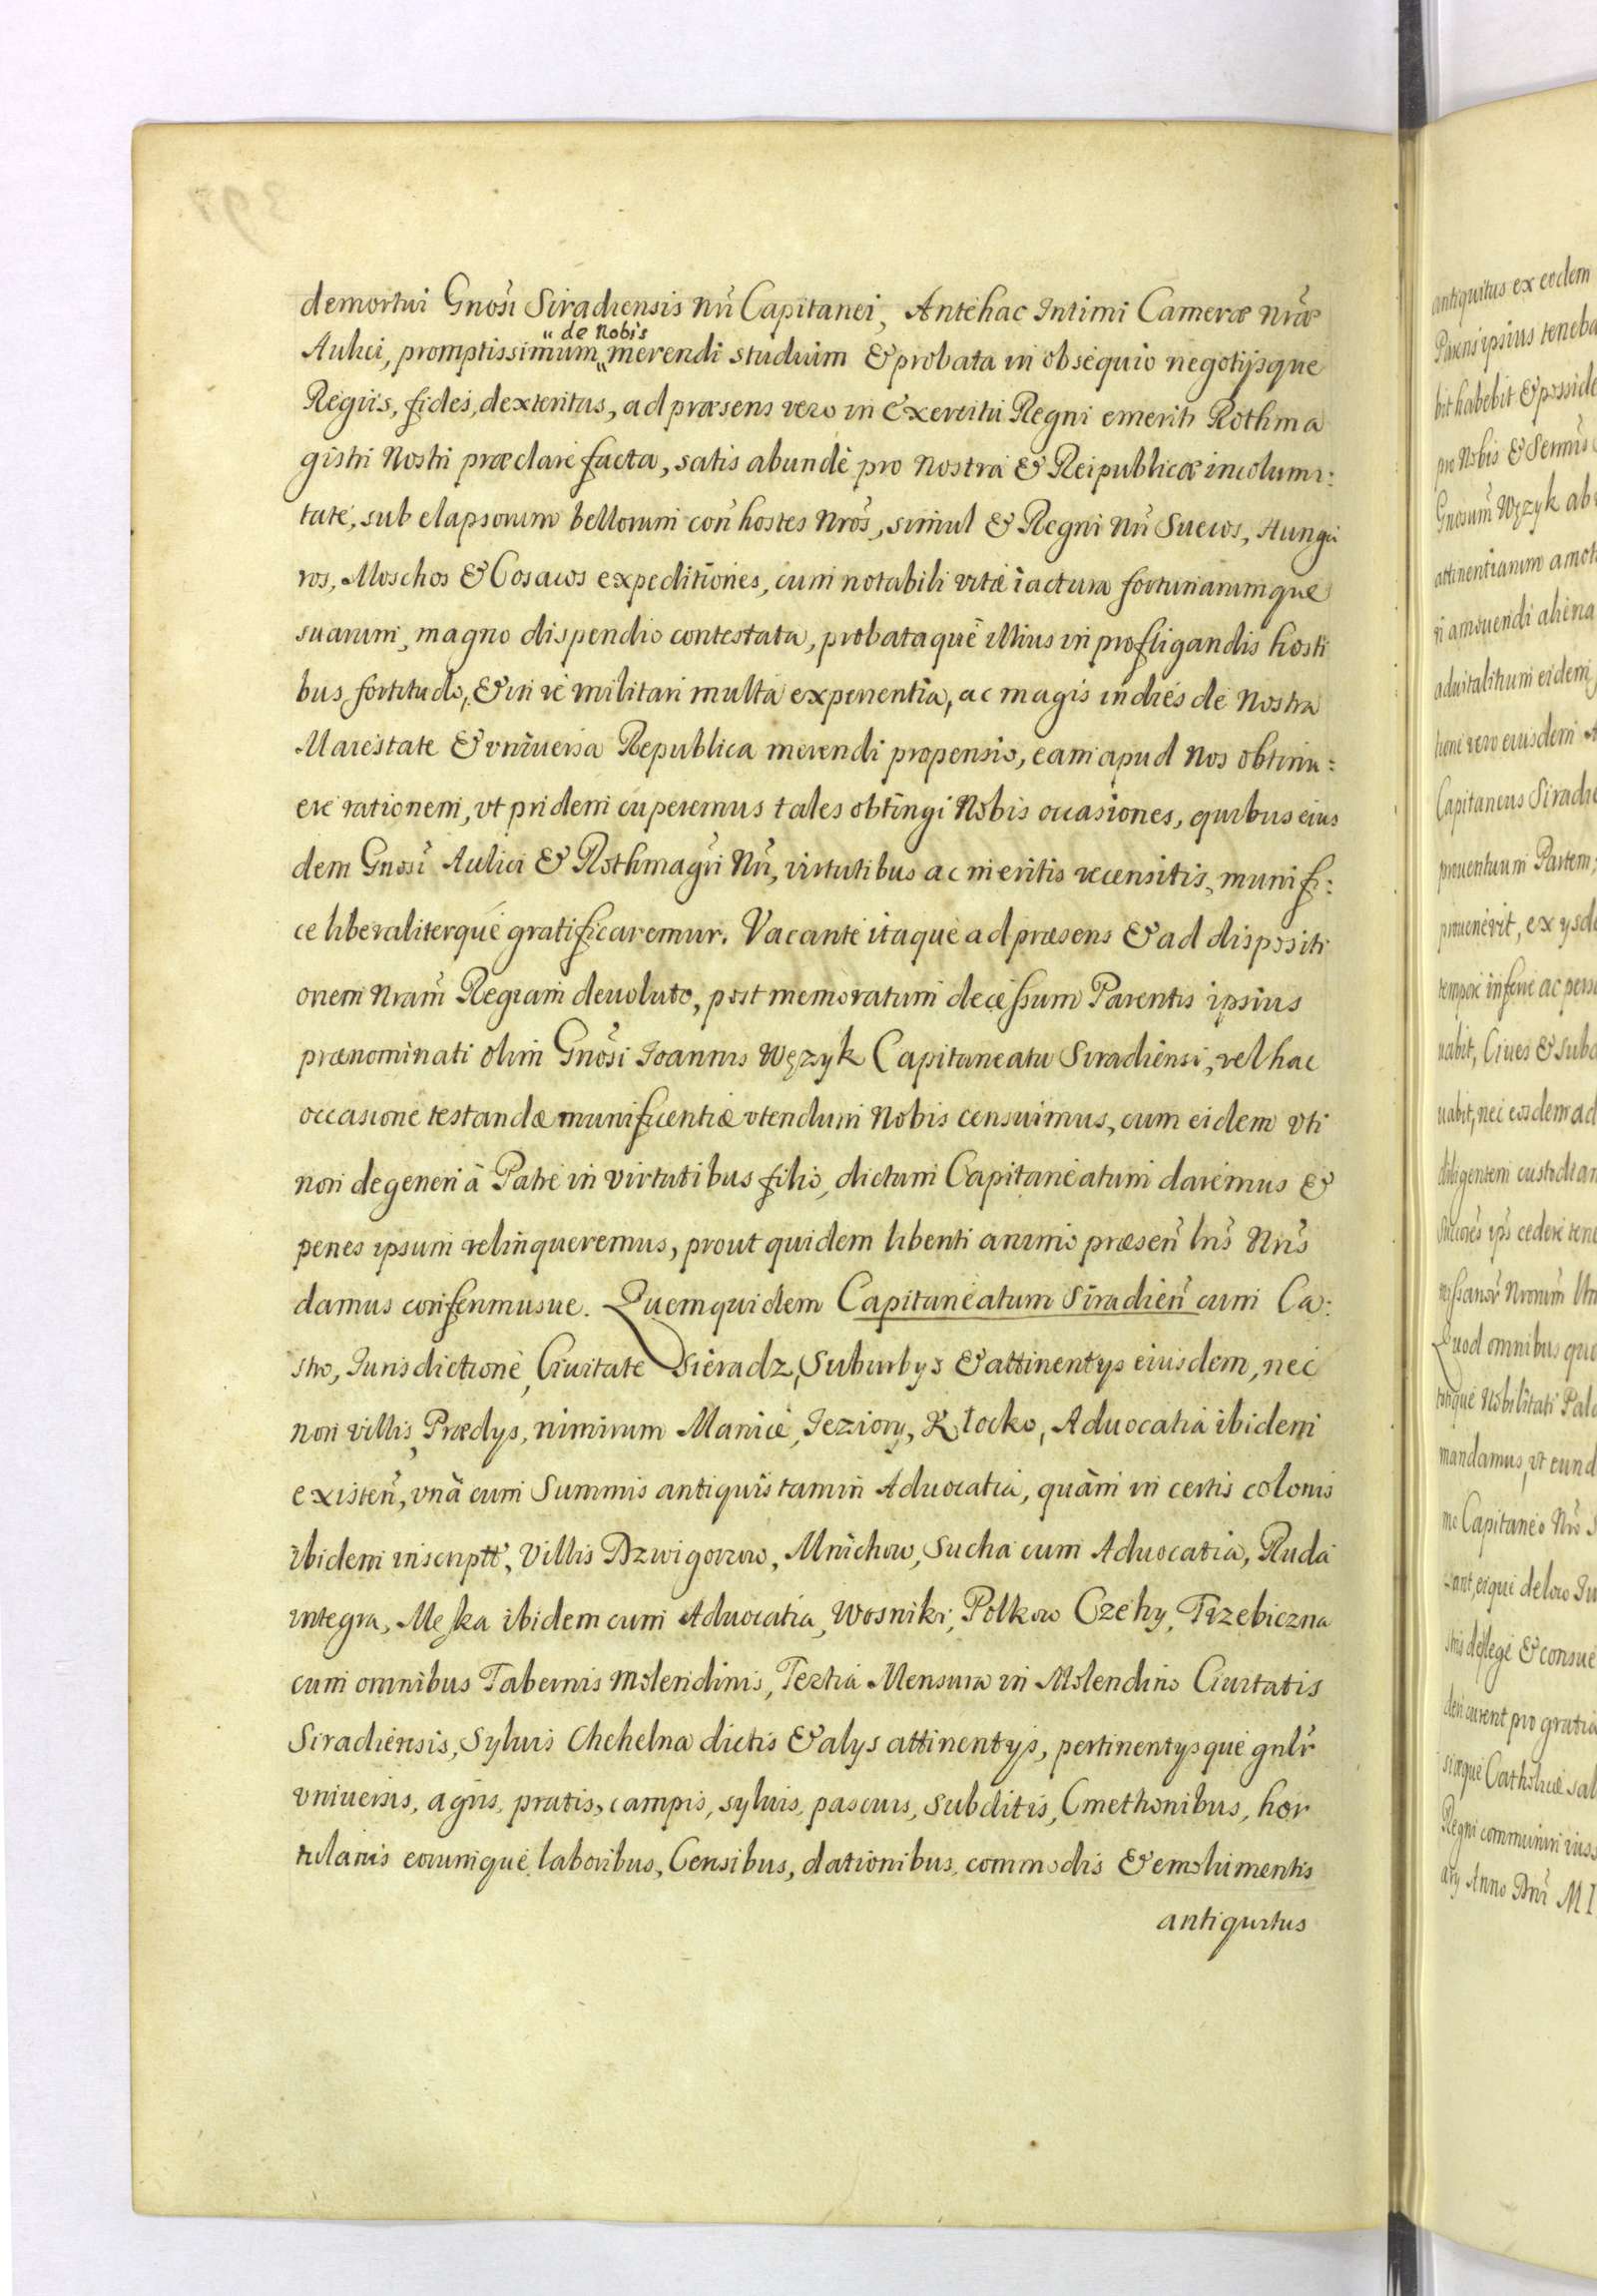 demortui Gnosi Siradiensis Nri Capitanei, Antehac Intimi Cameræ Nræ
de Nobis
Aulici, promptissimum merendi studium & probata in obsequio negotijsque
Regijs, fides, dexteritas, ad præsens vero in Exercitu Regni emeriti Rothma
gistri Nostri præclare facta, satis abundè pro Nostra & Reipublicæ incolumi:
tate, sub elapsorum bellorum con hostes Nros, simul & Regni Nri Suecos, Hunga
ros, Moschos & Cosacos expeditiones, cum notabili vitæ iactura fortunarumque
suarum, magno dispendio contestata, probataque illius in profligandis hosti
bus fortitudo, & in re militari multa experientia, ac magis indies de Nostra
Maiestate & vniuersa Republica merendi propensio, eam apud Nos obtinu:
ere rationem, vt pridem cuperemus tales obtingi Nobis occasiones, quibus eius
dem Gnosi Aulici & Rothmagri Nri, virtutibus ac meritis recensitis, munifi:
ce liberaliterque gratificaremur. Vacante itaque ad præsens & ad dispositi
onem Nram Regiam deuoluto, post memoratum decessum Parentis ipsius
prænominati olim Gnosi Ioannis Wężyk Capitaneatu Siradiensi, vel hac
occasione testandæ munificentiæ vtendum Nobis censuimus, cum eidem vti
non degeneri à Patre in virtutibus filio, dictum Capitaneatum daremus &
penes ipsum relinqueremus, prout quidem libenti animo præsen lris Nris
damus conferimusue. Quemquidem Capitaneatum Siradien cum Ca:
stro, Iurisdictione, Ciuitate Sieradz, Suburbys & attinentys eiusdem, nec
non villis, Prædys, nimirum Manice, Jeziory, Kłocko, Aduocatia ibidem
existen, vnà cum Summis antiquis tam in Aduocatia, quàm in certis colonis
ibidem inscriptt, Villis Dzwigorzow, Mnichow, Sucha cum Aduocatia, Ruda
integra, Męka ibidem cum Aduocatia, Wosniki, Polkow Czehy, Trzebiczna
cum omnibus Tabernis Molendinis, Tertia Mensura in Molendino Ciuitatis
Siradiensis, Syluis Chehelna dictis & alys attinentys, pertinentysque gnlr
vniuersis, agris, pratis, campis, syluis, pascuis, Subditis, Cmethonibus, hor
tulanis eorumque laboribus, Censibus, dationibus, commodis & emolumentis
antiquitus
antiquitus ex eodem
Parens ipsius teneba
bit habebit & posside
pro Nobis & Sermis
Gnosum Wężyk ab
attinentiarum amot
ri amouendi aliena
aduitalitium eidem
tione vero eiusdem
Capitaneus Siradie
prouentuum Partem,
prouenerit, ex ysde
nabit, Ciues & Subd
uabit, nec eosdem ad
diligentem custodiam
Quod omnibus quo
mandamus, vt eund
mo Capitaneo Nro S
siæque Catholicæ sal
Regni communiri iuss
ary Anno Dni M